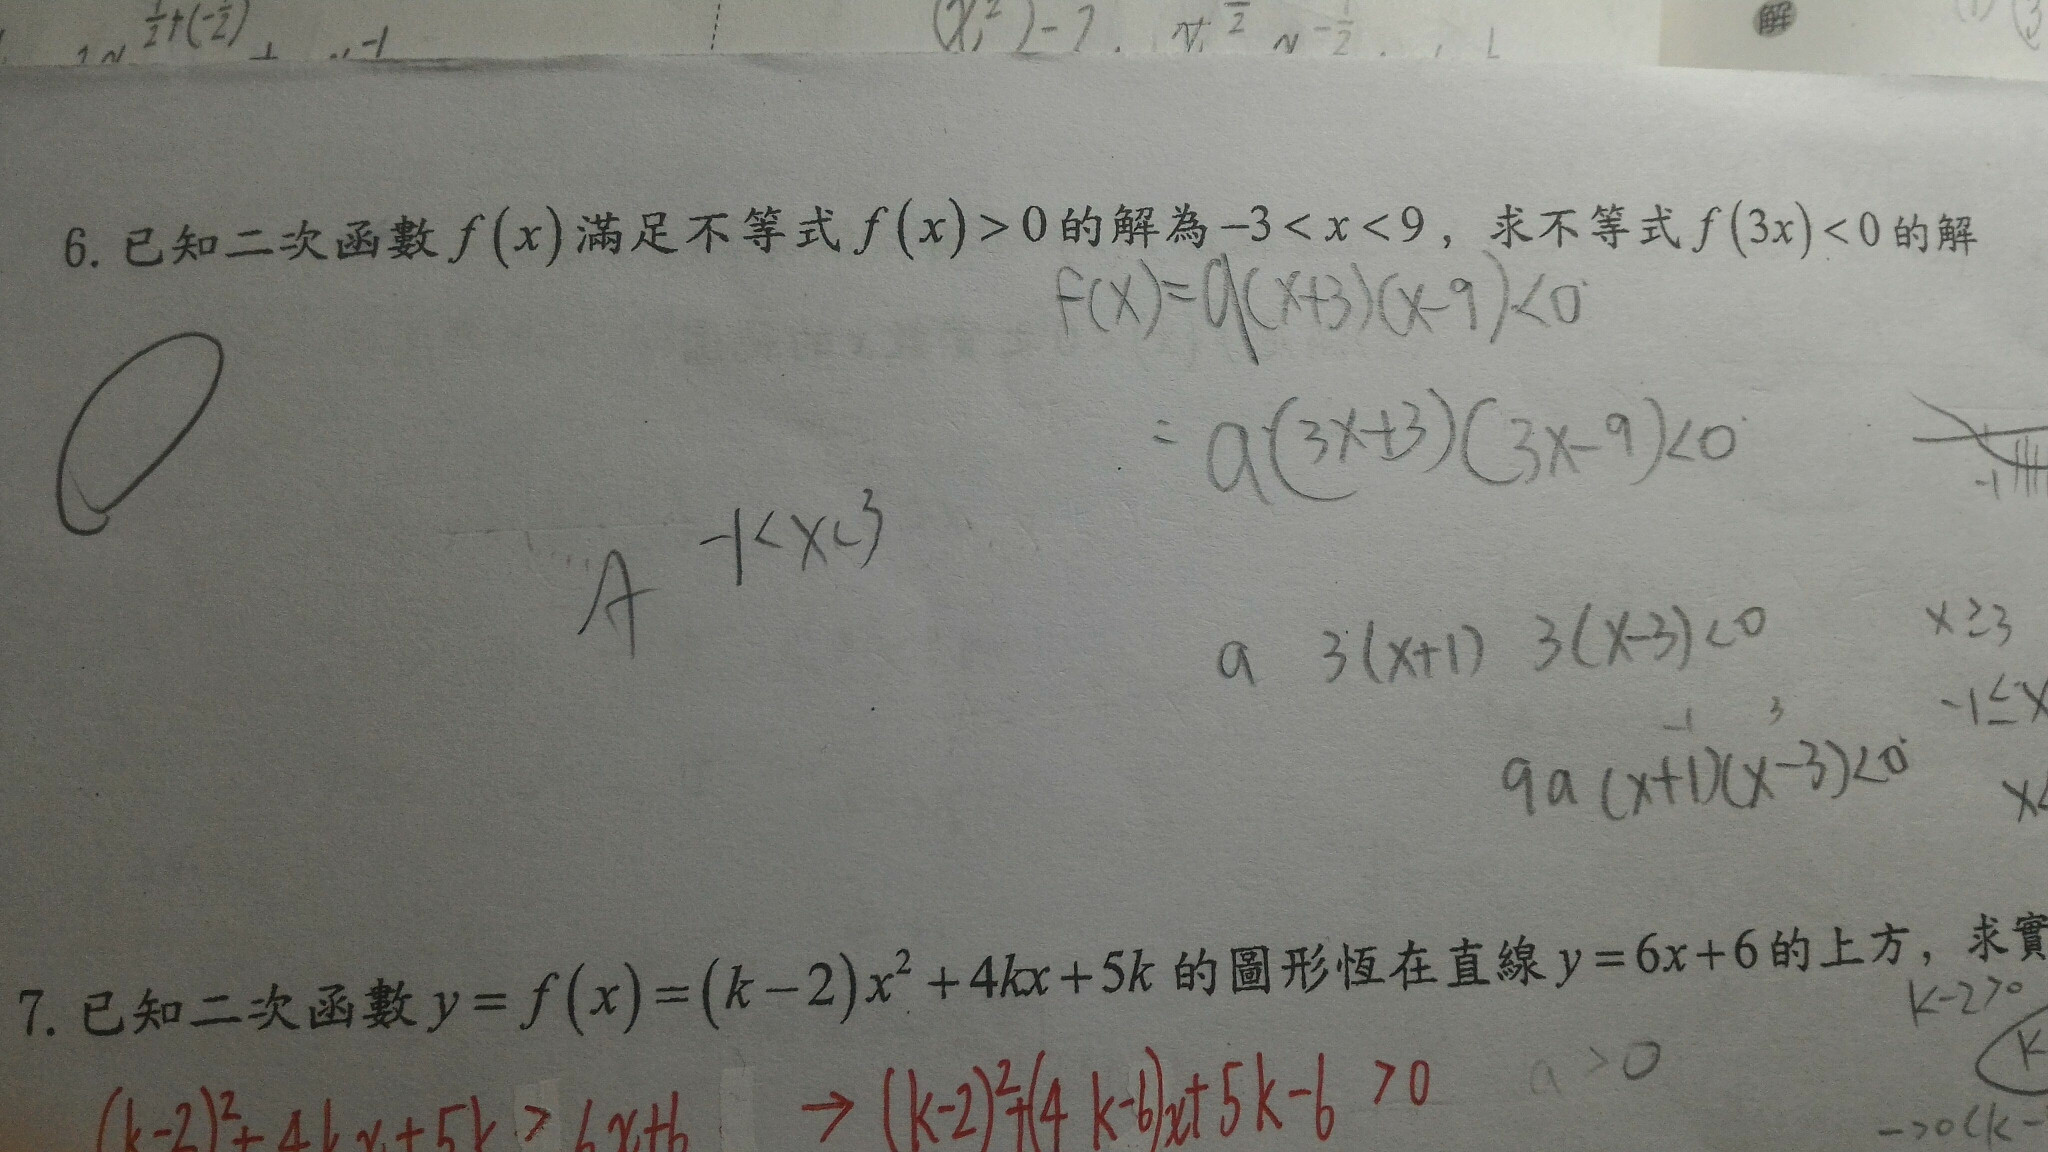 ½+(-½)
(x²)-2
解
6. 已知二次函數 f(x) 滿足不等式 f(x)>0 的解為 -3<x<9，求不等式 f(3x)<0 的解
f(x)=a(x+3)(x-9)<0
=a(3x+3)(3x-9)<0
-1
A -1<x<3
a 3(x+1) 3(x-3)<0
x≥3
-1≤x
-1 3
9a(x+1)(x-3)<0
x<
7. 已知二次函數 y=f(x)=(k-2)x²+4kx+5k 的圖形恆在直線 y=6x+6 的上方，求實
k-2>0
k
a>0
(k-2)²+4kx+5k>6x+6 → (k-2)²+(4k-6)x+5k-6>0